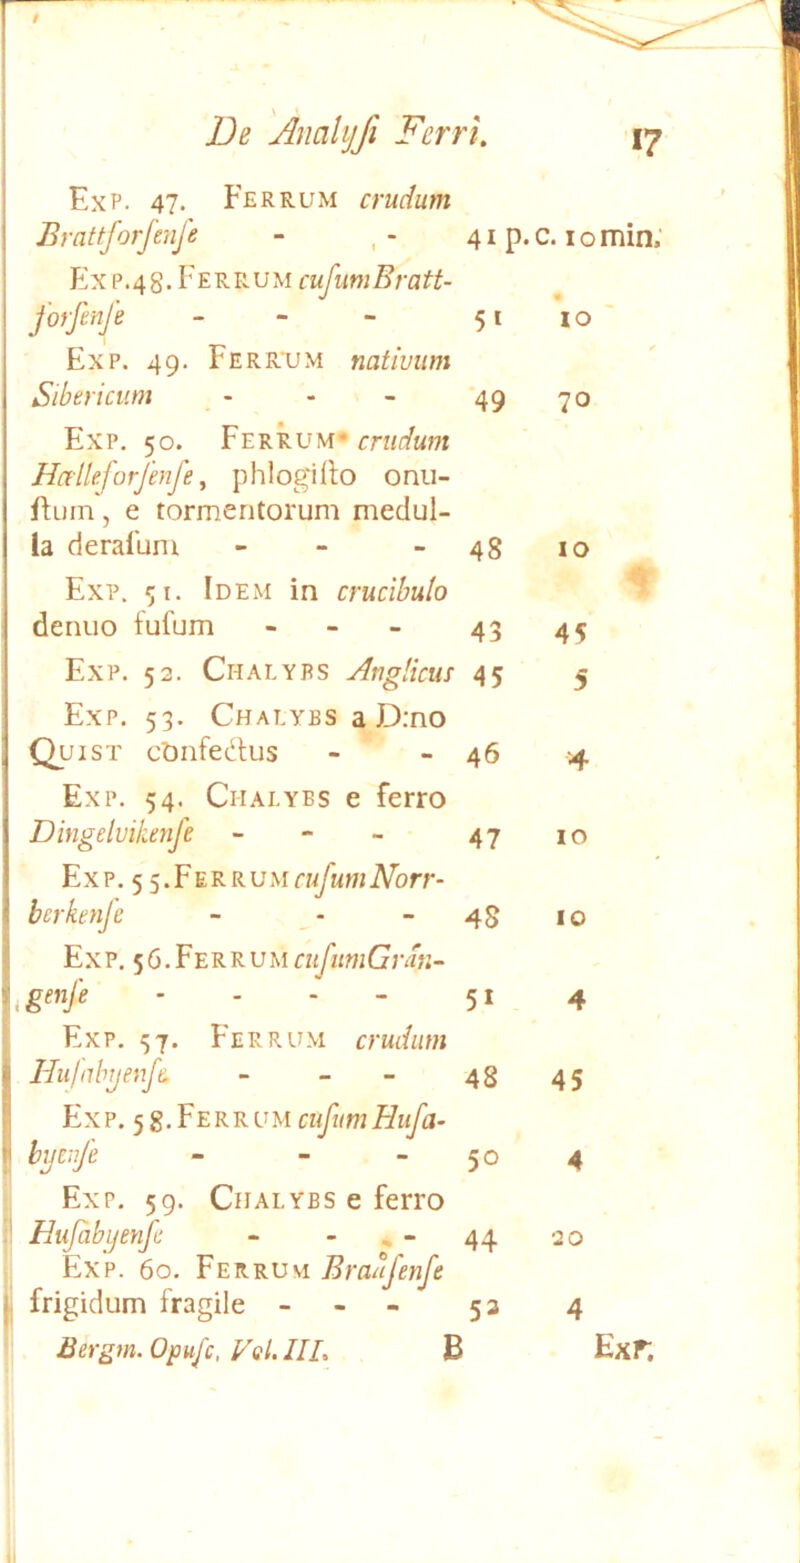 De Analyſi Ferri. 17
Exp. 47. Ferrum crudum
Brattforſenſe - - 41 p.c. 10 min.
Exp. 48. Ferrum cuſum Bratt-
forſenſe - - - 51 10
Exp. 49. Ferrum nativum
Sibericum - - - 49 70
Exp. 50. Ferrum crudum
Hælleforſenſe, phlogiſto onu-
ſtum, e tormentorum medul-
la deraſum - - - 48 10
Exp. 51. Idem in crucibulo
denuo fuſum - - - 43 45
Exp. 52. Chalybs Anglicus 45 5
Exp. 53. Chalybs a D:no
Quist confectus - - 46 4
Exp. 54. Chalybs e ferro
Dingelvikenſe - - - 47 10
Exp. 55. Ferrum cuſum Norr-
berkenſe - - - 48 10
Exp. 56. Ferrum cuſum Grån-
genſe - - - - 51 4
Exp. 57. Ferrum crudum
Huſabyenſe - - - 48 45
Exp. 58. Ferrum cuſum Huſa-
byenſe - - - 50 4
Exp. 59. Chalybs e ferro
Huſabyenſe - - - 44 20
Exp. 60. Ferrum Braåſenſe
frigidum fragile - - - 52 4
Bergm. Opuſc. Vol. III. B Exp.